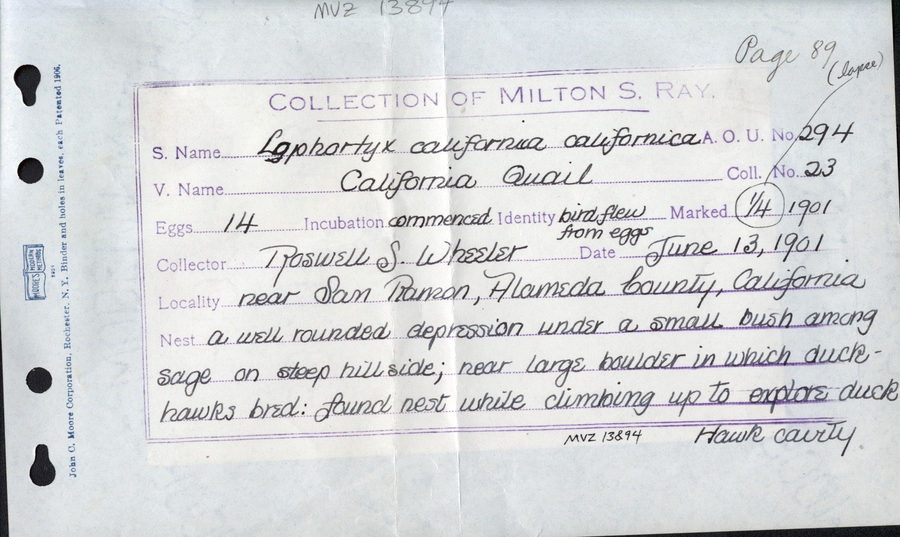 MVZ 13894
Page 89
(lapse)
COLLECTION OF MILTON S. RAY.
S. Name Lophortyx california californica A. O. U. No. 294
V. Name California Quail Coll. No. 23
Eggs 14 Incubation commenced Identity bird flew from eggs Marked 1/4 1901
Collector Roswell S. Wheeler Date June 13, 1901
Locality near San Ramon, Alameda County, California
Nest a well rounded depression under a small bush among
sage on steep hillside; near large boulder in which duck-
hawks bred: found nest while climbing up to explore duck
Hawk cavity.
MVZ 13894
John C. Moore Corporation, Rochester, N. Y. Binder and holes in leaves, each Patented 1906.
MOORE'S MODERN METHODS